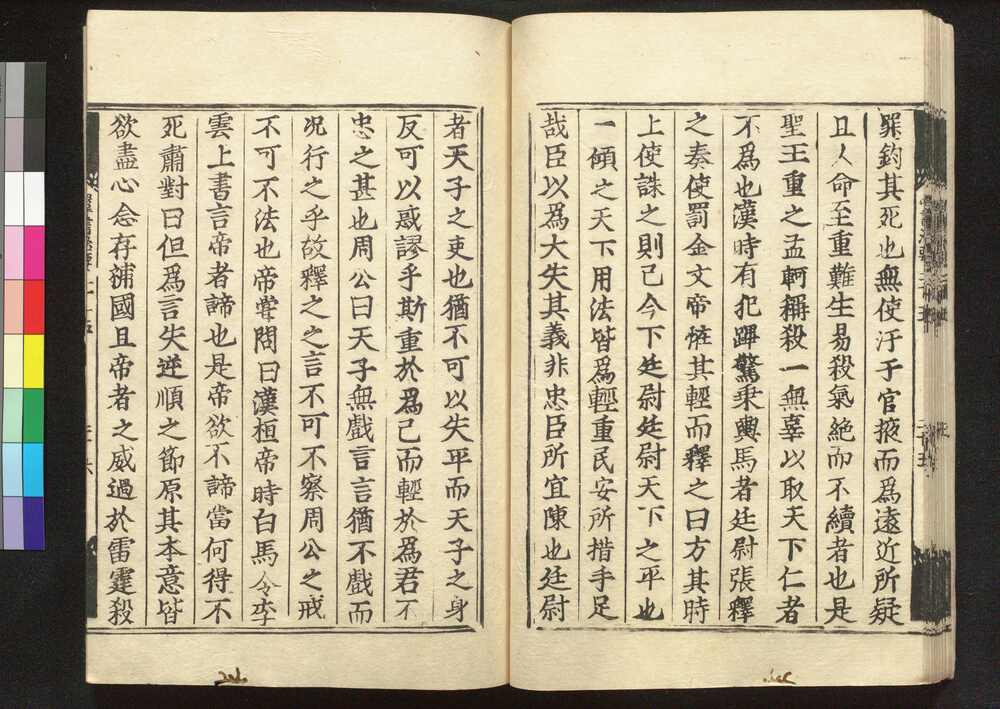 罪鈞其死也無使汙于官掖而爲遠近所疑
且人命至重難生易殺氣絶而不續者也是
聖王重之孟軻稱殺一無辜以取天下仁者
不爲也漢時有犯蹕驚乗輿馬者廷尉張釋
之奏使罰金文帝恠其輕而釋之曰方其時
上使誅之則已今下廷尉廷尉天下之平也
一傾之天下用法皆爲輕重民安所措手足
哉臣以爲大失其義非忠臣所宜陳也廷尉
者天子之吏也猶不可以失平而天子之身
反可以惑謬乎斯重於爲己而輕於爲君不
忠之甚也周公曰天子無戲言言猶不戲而
况行之乎故釋之之言不可不察周公之戒
不可不法也帝甞問曰漢桓帝時白馬令李
雲上書言帝者諦也是帝欲不諦當何得不
死肅對曰但爲言失逆順之節原其本意皆
欲盡心念存補國且帝者之威過於雷霆殺